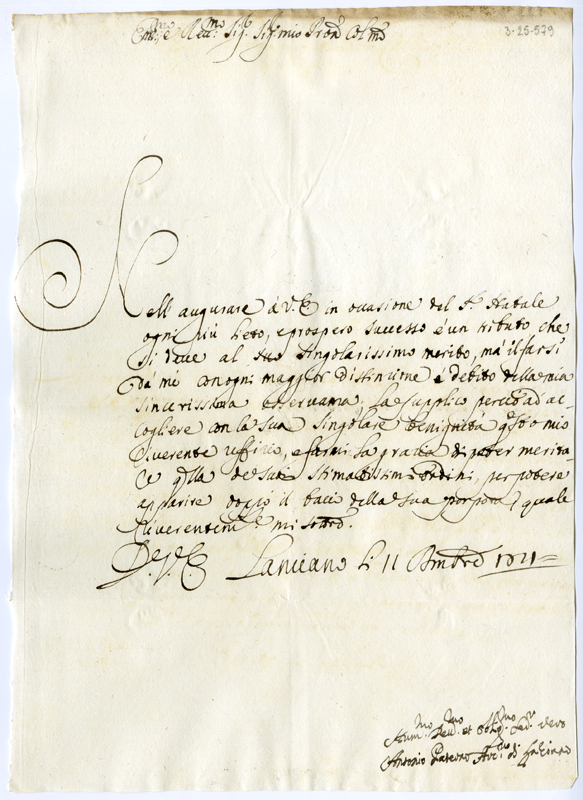 Em̃o e Reũmo Sig. Sig. mio Prõn Colmo
3-25-579
Nell augurare à V.E. in occasione del S. Natale
ogni più lieto, e prospero successo è un tributo che
si deve al suo singolarissimo merito, mà il farsi
dà mè con ogni maggior distinzione è debito della mia
sincerissima osservanza. La supplico perciò ad ac-
cogliere con la sua singolare benignità qsto mio
riverente uffizio, e farmi la grazia di poter merita-
re qlla de suoi stimatissimi ordini, per potere
apparire doppo il bacio della sua porpora, quale
riverentem̃e mi
De V.E. Lanciano li 11 Xmbre
Hum. Deu. et Oblig. Ser. vero
Antonio Paterno Arc. di Lanciano